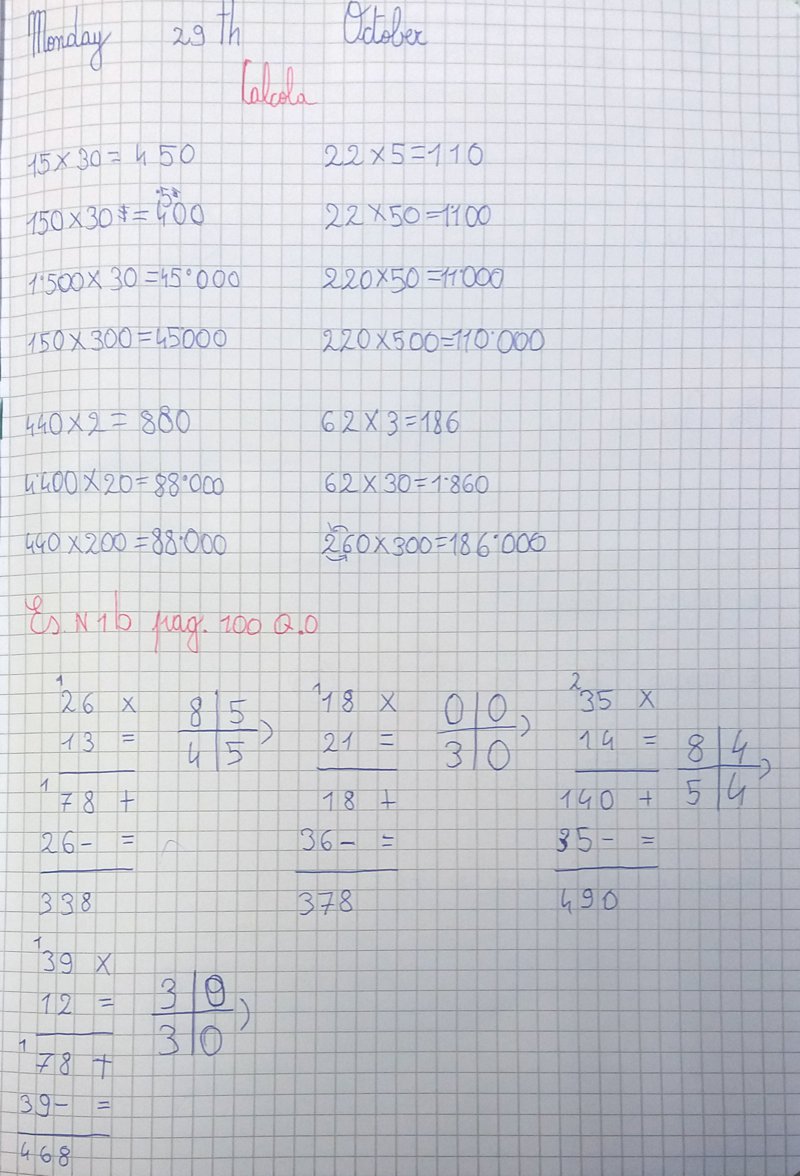 Monday 29th October
Calcola
15 x 30 = 450 22 x 5 = 110
150 x 30 = 4500 22 x 50 = 1100
1·500 x 30 = 45·000 220 x 50 = 11·000
150 x 300 = 45000 220 x 500 = 110·000
440 x 2 = 880 62 x 3 = 186
4400 x 20 = 88·000 62 x 30 = 1·860
440 x 200 = 88·000 260 x 300 = 186·000
Es N 1b pag. 100 Q.O
1 1 2
26 x 8 | 5 18 x 0 | 0 35 x
13 = 4 | 5 21 = 3 | 0 14 = 8 | 4
1 78 + 18 + 140 + 5 | 4
26- = 36- = 35- =
338 378 490
1
39 x 3 | 0
12 = 3 | 0
1 78 +
39- =
468